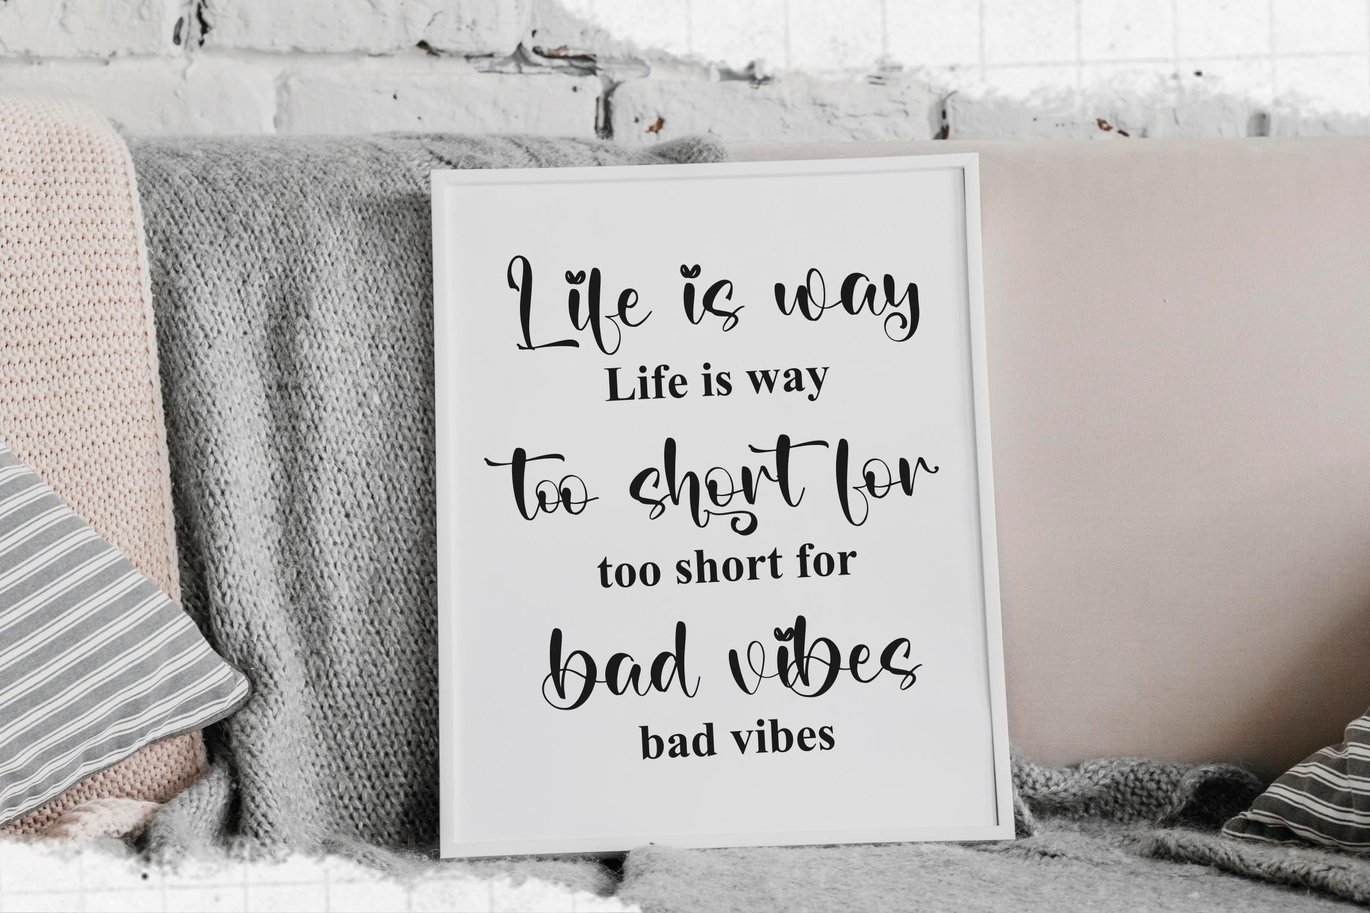 Life is way
Life is way
too short for
too short for
bad vibes
bad vibes